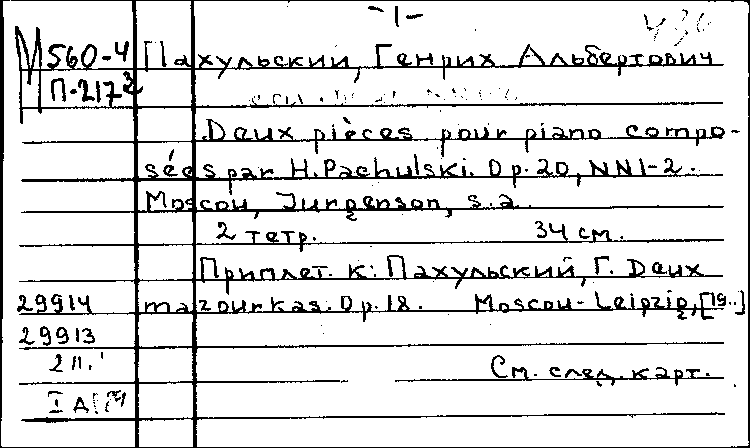 -1-
М560-4 Пахульский, Генрих Альбертович
П-217
Deux pièces pour piano compo-
sées par H. Pachulski. Op. 20, NN1-2.
Moscou, Jurgenson, s.a.
2 тетр. 34 см.
Приплет. к: Пахульский, Г. Deux
29914 mazourkas. Op. 18. Moscou-Leipzig, [19..]
29913
2 н.
См. след. карт.